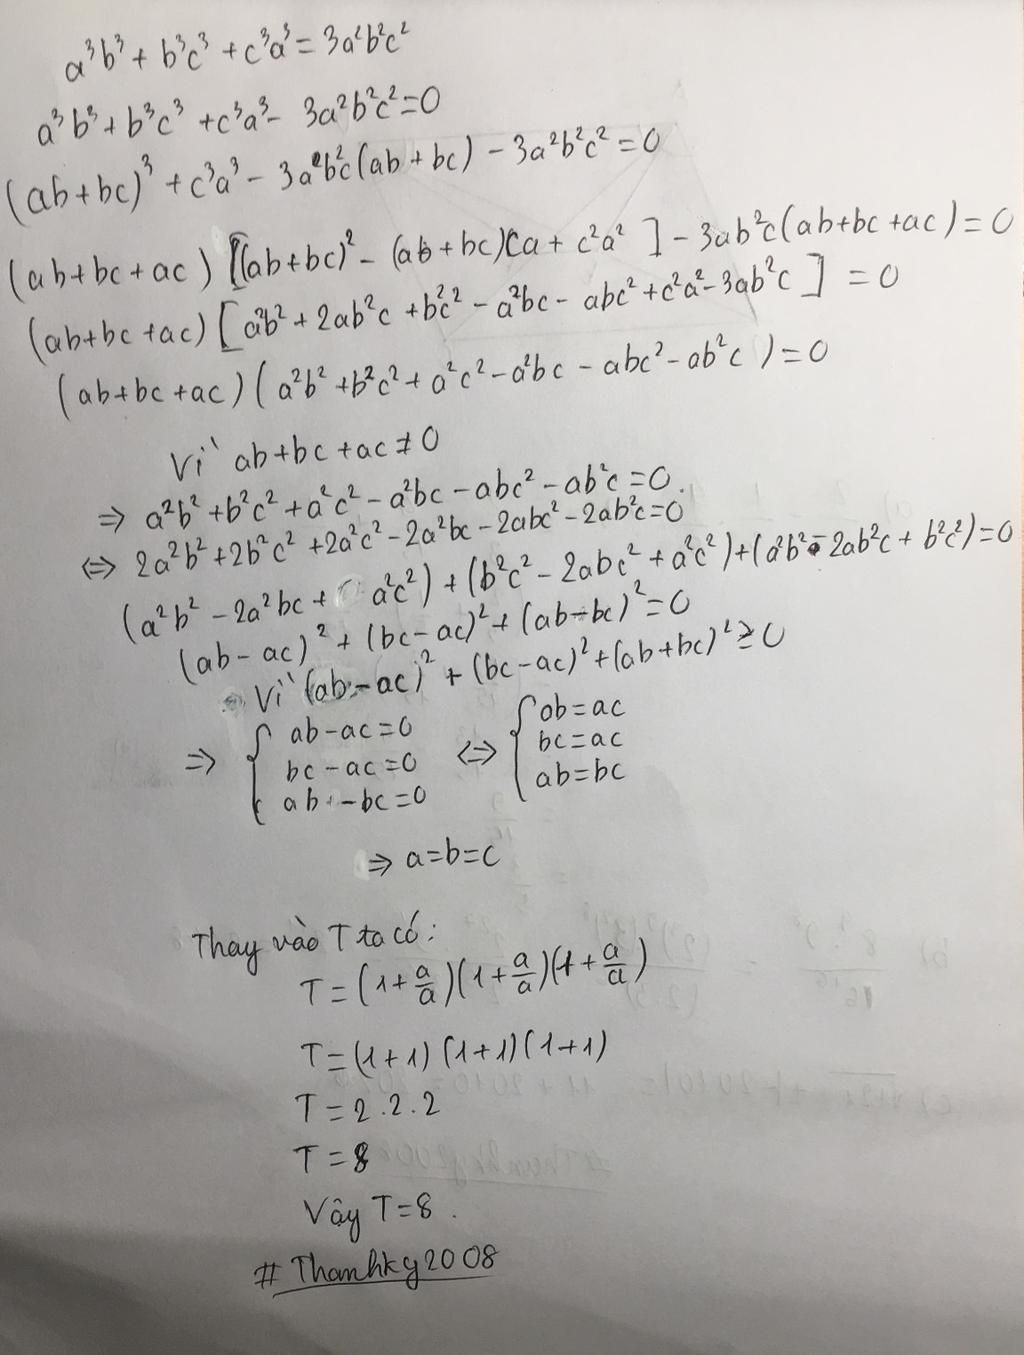 a³b³ + b³c³ + c³a³ = 3a²b²c²
a³b³ + b³c³ + c³a³ - 3a²b²c² = 0
(ab + bc)³ + c³a³ - 3a²b²c(ab + bc) - 3a²b²c² = 0
(ab + bc + ac) [(ab + bc)² - (ab + bc)ca + c²a²] - 3ab²c(ab + bc + ac) = 0
(ab + bc + ac) [a²b² + 2ab²c + b²c² - a²bc - abc² + c²a² - 3ab²c] = 0
(ab + bc + ac) (a²b² + b²c² + a²c² - a²bc - abc² - ab²c) = 0
Vì ab + bc + ac ≠ 0
⇒ a²b² + b²c² + a²c² - a²bc - abc² - ab²c = 0.
⇔ 2a²b² + 2b²c² + 2a²c² - 2a²bc - 2abc² - 2ab²c = 0
(a²b² - 2a²bc + a²c²) + (b²c² - 2abc² + a²c²) + (a²b² - 2ab²c + b²c²) = 0
(ab - ac)² + (bc - ac)² + (ab - bc)² = 0
Vì (ab - ac)² + (bc - ac)² + (ab + bc)² ≥ 0
⇒ { ab - ac = 0 ⇔ { ab = ac
bc - ac = 0 bc = ac
ab - bc = 0 ab = bc
⇒ a = b = c
Thay vào T ta có:
T = (1 + a/a)(1 + a/a)(1 + a/a)
T = (1 + 1)(1 + 1)(1 + 1)
T = 2 . 2 . 2
T = 8
Vậy T = 8.
# Thanhkg2008